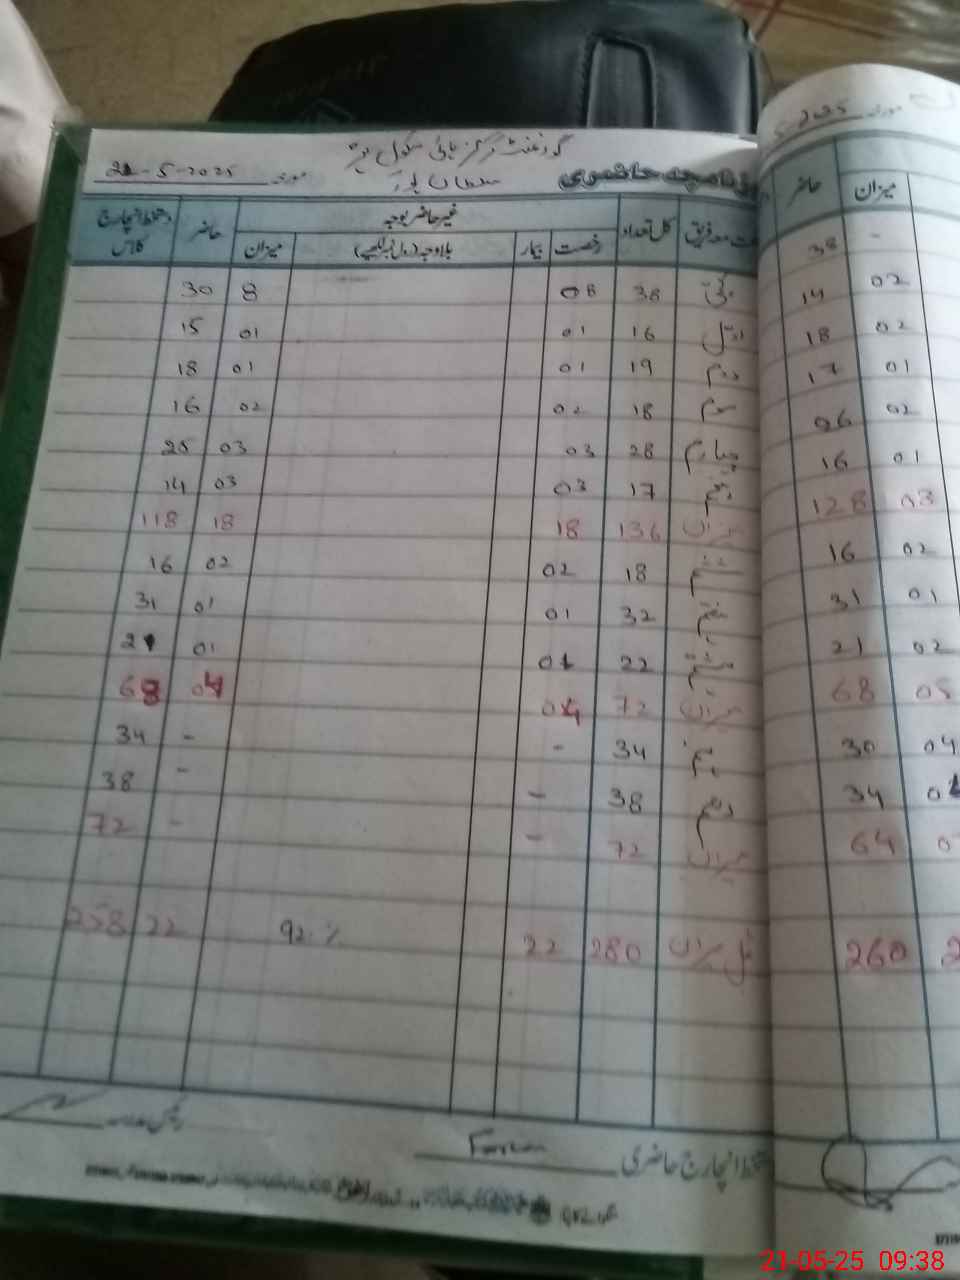 گورنمنٹ گرلز ہائی سکول
روزنامچہ حاضری
مورخہ 21-5-2025
کل تعداد غیر حاضر بوجہ حاضر دستخط انچارج کلاس
رخصت بیمار بلاوجہ (رول نمبر لکھیے) میزان
کچی 38 08 8 30
اول 16 01 01 15
دوم 19 01 01 18
سوم 18 02 02 16
چہارم 28 03 03 25
پنجم 17 03 03 14
میزان 136 18 18 118
ششم 18 02 02 16
ہفتم 32 01 01 31
ہشتم 22 01 01 21
میزان 72 04 04 68
نہم 34 - - 34
دہم 38 - - 38
میزان 72 - - 72
کل میزان 280 22 92٪ 22 258
دستخط انچارج حاضری
رئیس مدرسہ
مورخہ 5-2025
حاضر میزان
38 -
14 02
18 02
17 01
26 02
16 01
128 08
16 02
31 01
21 02
68 05
30 04
34 04
64
260
21-05-25 09:38